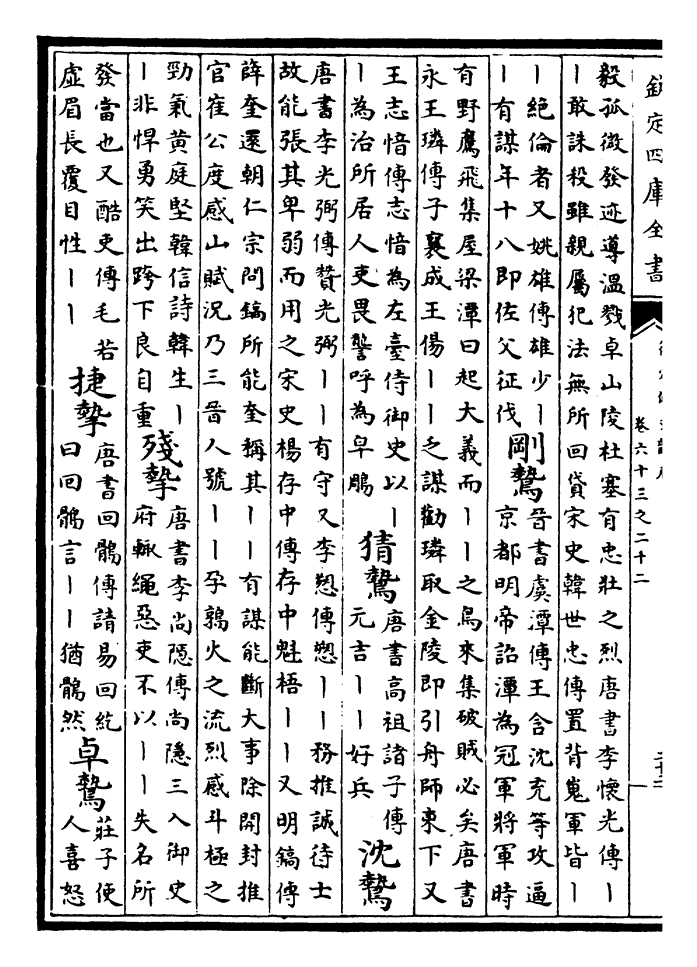 欽定四庫全書
卷六十三之二十二
毅孤微發迹導溫戮卓山陵杜塞有忠壯之烈唐書李懷光傳丨
丨敢誅殺雖親屬犯法無所回貸宋史韓世忠傳置背嵬軍皆丨
丨絶倫者又姚雄傳雄少丨
丨有謀年十八即佐父征伐
剛鷙
晉書虞潭傳王含沈充等攻逼
京都明帝詔潭為冠軍將軍時
有野鷹飛集屋梁潭曰起大義而丨丨之鳥來集破賊必矣唐書
永王璘傳子襄成王偒丨丨乏謀勸璘取金陵即引舟師東下又
王志愔傳志愔為左臺侍御史以丨
丨為治所居人吏畏讋呼為皁鵰
猜鷙
唐書高祖諸子傳
元吉丨丨好兵
沈鷙
唐書李光弼傳贊光弼丨丨有守又李愬傳愬丨丨務推誠待士
故能張其卑弱而用之宋史楊存中傳存中魁梧丨丨又明鎬傳
薛奎還朝仁宗問鎬所能奎稱其丨丨有謀能斷大事除開封推
官崔公度感山賦況乃三晉人號丨丨孕鶉火之流烈感斗極之
勁氣黄庭堅韓信詩韓生丨
丨非悍勇笑出跨下良自重
殘摯
唐書李尚隱傳尚隱三入御史
府輒繩惡吏不以丨丨失名所
發當也又酷吏傳毛若
虛眉長覆目性丨丨
捷摯
唐書回鶻傳請易回紇
曰回鶻言丨丨猶鶻然
卓鷙
莊子便
人喜怒